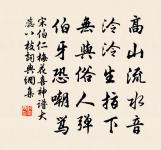 高山流水音
泠泠生指下
無與俗人彈
伯牙恐嘲罵
宋伯仁梅花喜神譜大
蕊八枝詞典網集